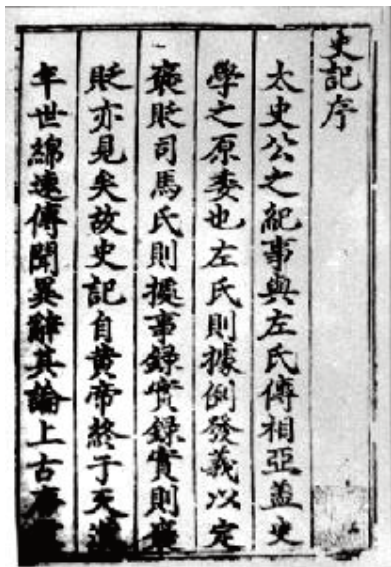 史記序
太史公之紀事與左氏傳相亞蓋史
學之原委也左氏則據例發義以定
褒貶司馬氏則據事録實録實則褒
貶亦見矣故史記自黄帝終于天漢
年世綿遠傳聞異辭其論上古